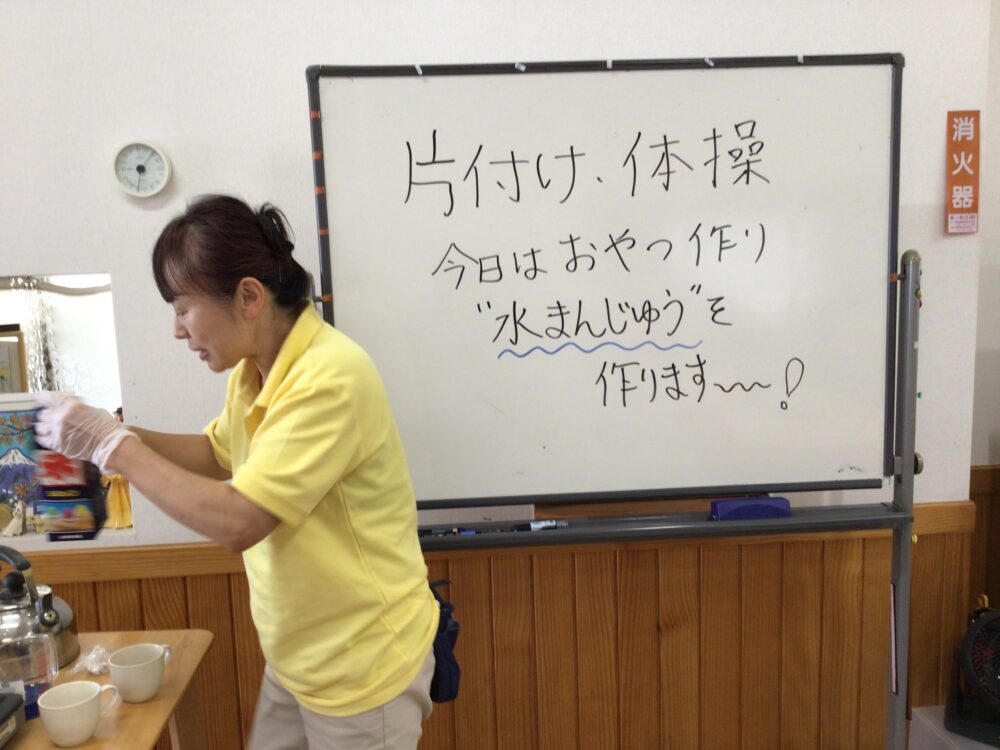 片付け、体操
今日は おやつ 作り
"水まんじゅう"を
作ります〜〜!
消火器